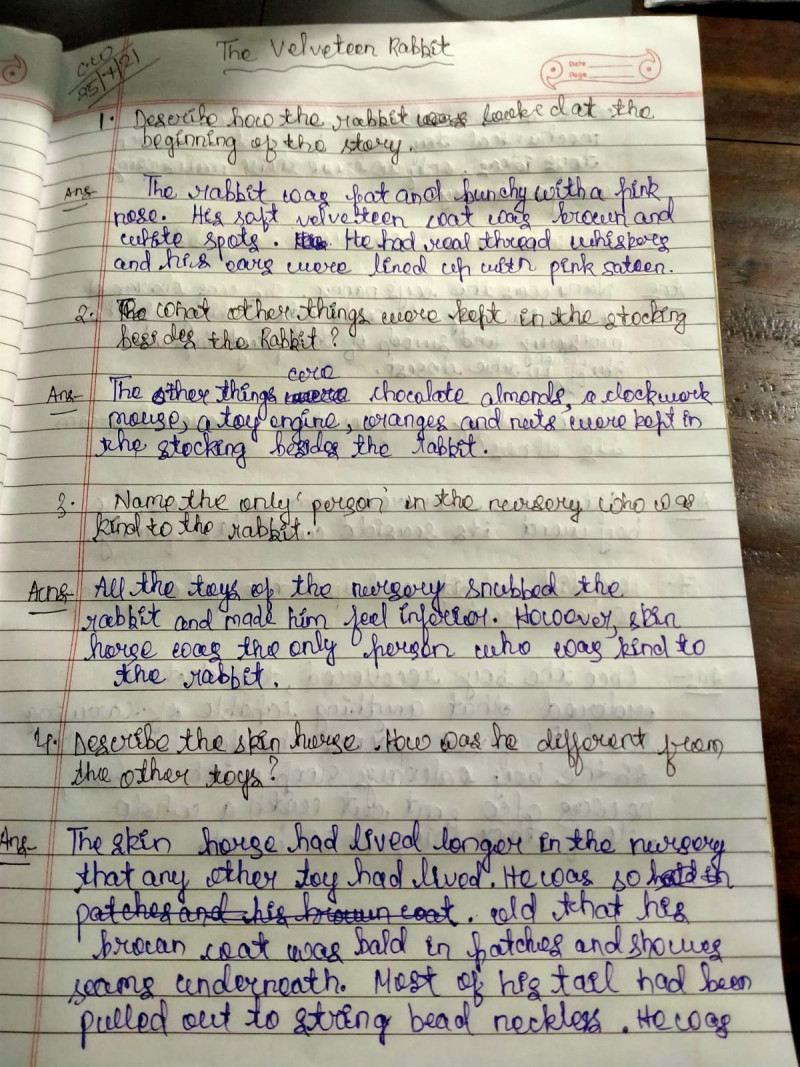 C.W
25/4/21
The Velveteen Rabbit
Date
Page
1. Describe how the rabbit looked at the
beginning of the story.
Ans- The rabbit was fat and bunchy with a pink
nose. His soft velveteen coat was brown and
white spots. He had real thread whiskers
and his ears were lined up with pink sateen.
2. What other things were kept in the stocking
besides the Rabbit?
were
Ans- The other things chocolate almonds, a clockwork
mouse, a toy engine, oranges and nuts were kept in
the stocking besides the rabbit.
3. Name the only 'person' in the nursery who was
kind to the rabbit.
Ans- All the toys of the nursery snubbed the
rabbit and made him feel inferior. However, skin
horse was the only person who was kind to
the rabbit.
4. Describe the skin horse. How was he different from
the other toys?
Ans- The skin horse had lived longer in the nursery
that any other toy had lived. He was so bald in
patches and his brown coat. old that his
brown coat was bald in patches and shows
seams underneath. Most of his tail had been
pulled out to string bead neckless. He was